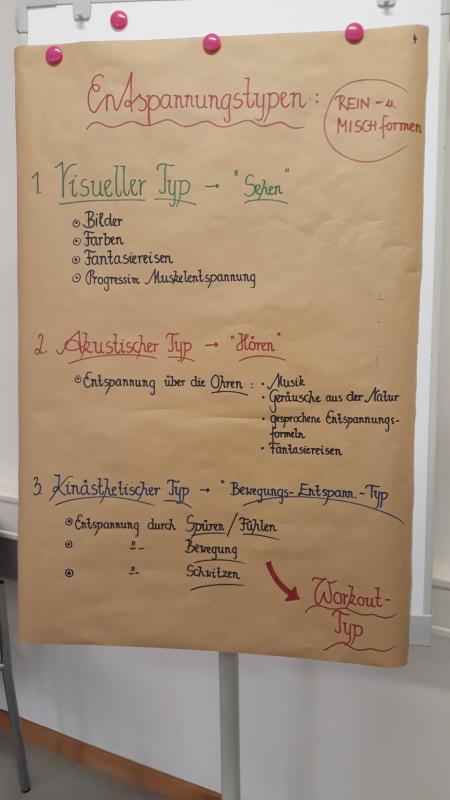 Entspannungstypen:
REIN- u.
MISCHformen
1. Visueller Typ → "Sehen"
Bilder
Farben
Fantasiereisen
Progressive Muskelentspannung
2. Akustischer Typ → "Hören"
Entspannung über die Ohren : • Musik
• Geräusche aus der Natur
• gesprochene Entspannungs-
formeln
• Fantasiereisen
3. Kinästhetischer Typ → "Bewegungs-Entspann.-Typ
Entspannung durch Spüren/Fühlen
-"- Bewegung
-"- Schwitzen
Workout-
Typ